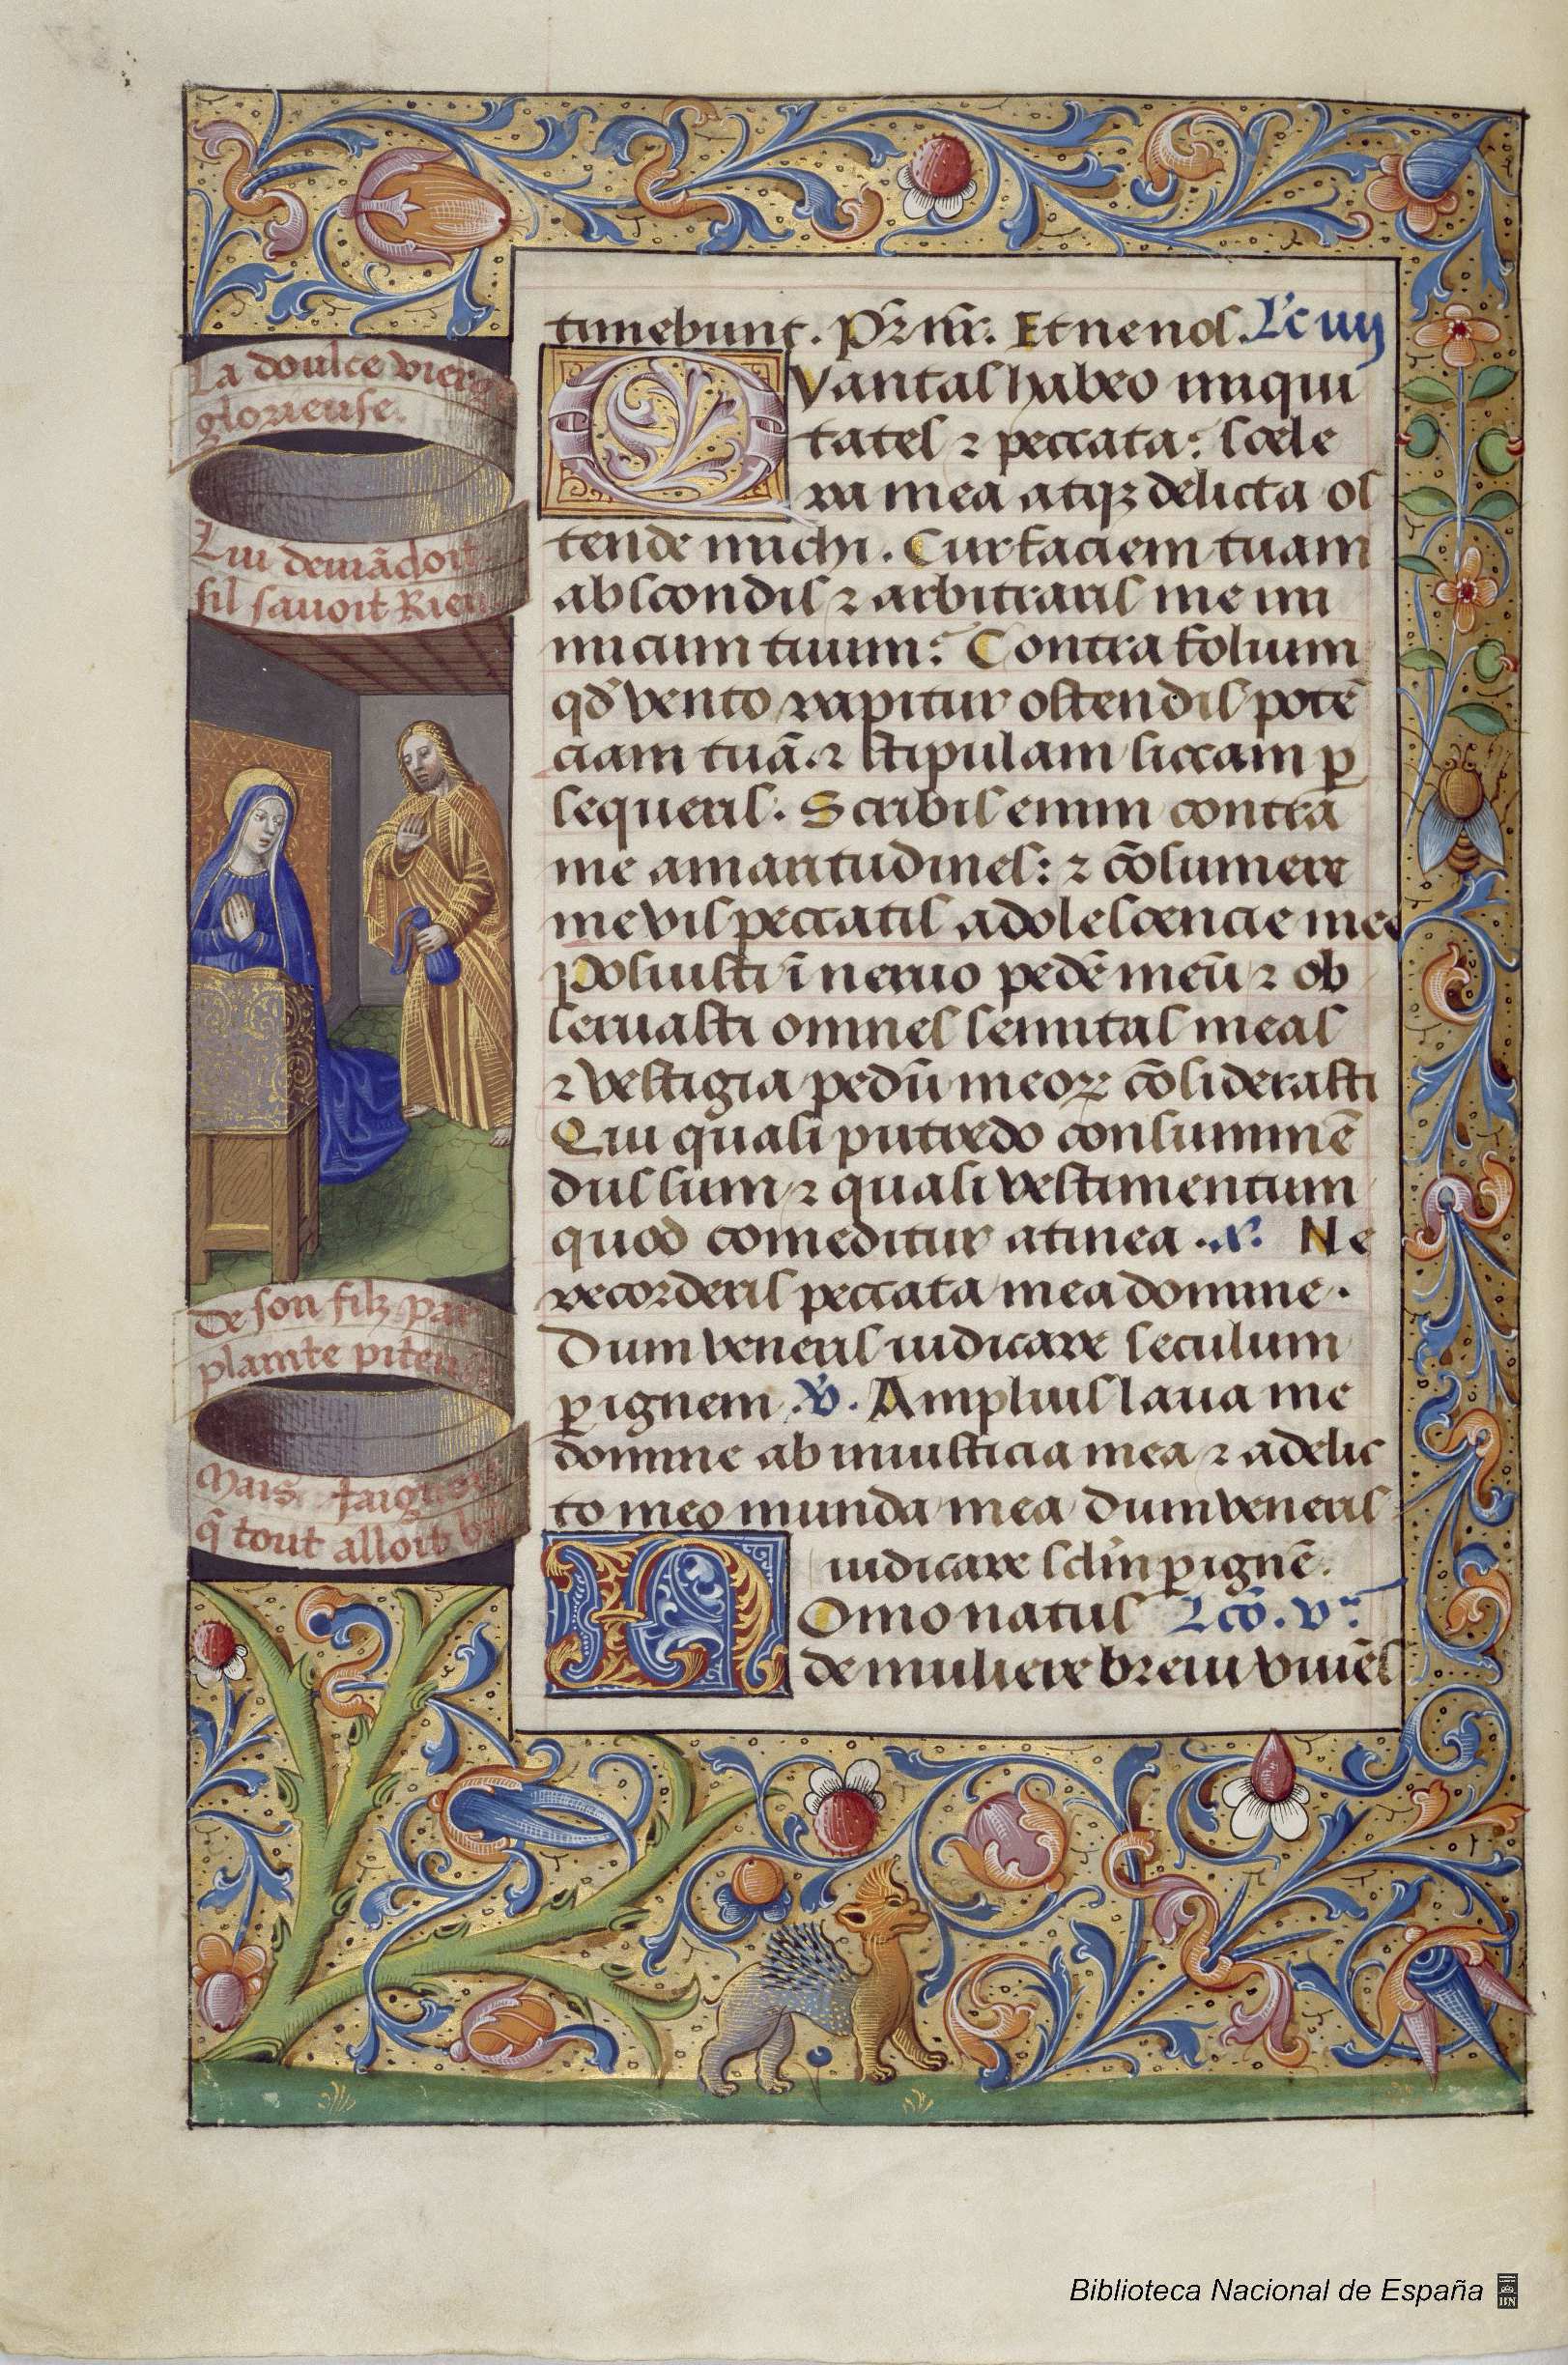 La doulce vierge
glorieuse.
Lui demãdoit
sil savoit Rien
De son filz par
plainte piteuse
Mais faignoit
q̃ tout alloit
timebunt. Pr̃ nr̃. Et ne nos. Lc̃ iiij
Quantas habeo iniqui
tates ⁊ peccata: scele
ra mea atqꝫ delicta os
tende michi. Cur faciem tuam
abscondis ⁊ arbitraris me ini
micum tuum: Contra folium
qđ vento rapitur ostendis potẽ
ciam tuã ⁊ stipulam siccam ꝑ
sequeris. Scribis enim contra
me amaritudines: ⁊ cõsumere
me vis peccatis adolescencie mee
Posuisti ĩ neruo pedẽ meũ ⁊ ob
seruasti omnes semitas meas
⁊ vestigia pedũ meoꝝ cõsiderasti
Qui quasi putredo consummẽ
dus sum ⁊ quasi vestimentum
quod comeditur a tinea. ℟. Ne
recorderis peccata mea domine.
Dum veneris iudicare seculum
ꝑ ignem ℣. Amplius laua me
domine ab iniusticia mea ⁊ a delic
to meo munda mea Dum veneris
iudicare sclm̃ ꝑ ignẽ.
Homo natus Lcõ. v.ª
de muliere breui viuẽs
Biblioteca Nacional de España
BN